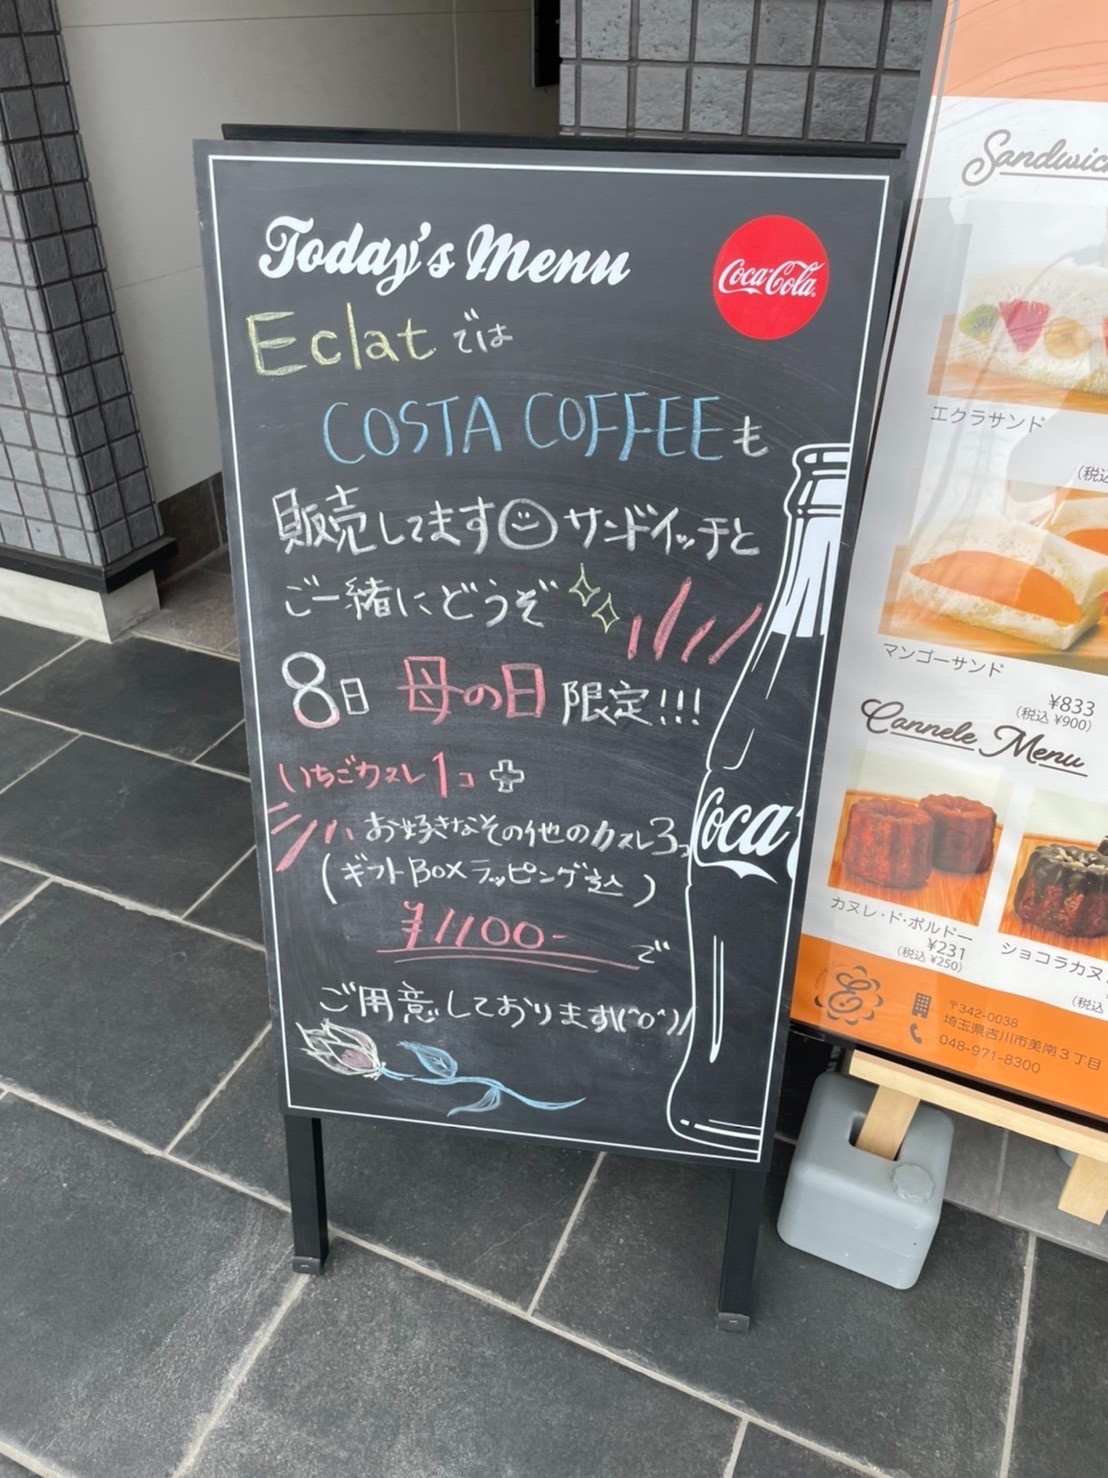 Today's Menu
Coca-Cola
Eclat では
COSTA COFFEE も
販売してます サンドイッチと
ご一緒にどうぞ
8日 母の日 限定!!!
いちごカヌレ 1コ +
お好きなその他のカヌレ3つ
(ギフトBOXラッピング込)
¥1100- で
ご用意しております\(^o^)/
Coca
Sandwic
エクラサンド
(税込
マンゴーサンド
¥833
(税込 ¥900)
Cannele Menu
カヌレ・ド・ボルドー
¥231
(税込 ¥250)
ショコラカヌ
(税込
〒342-0038
埼玉県吉川市美南3丁目
048-971-8300